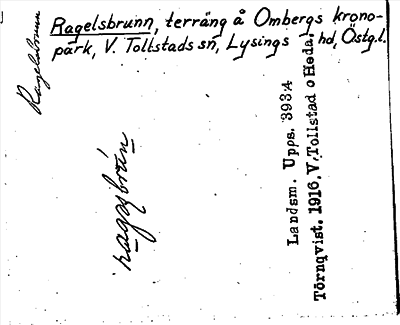 Ragelsbrunn
Ragelsbrunn, terräng å Ombergs krono-
park, V. Tollstads sn, Lysings hd, Östg.l.
Landsm. Upps. 393:4
Törnqvist. 1916. V. Tollstad o Heda.